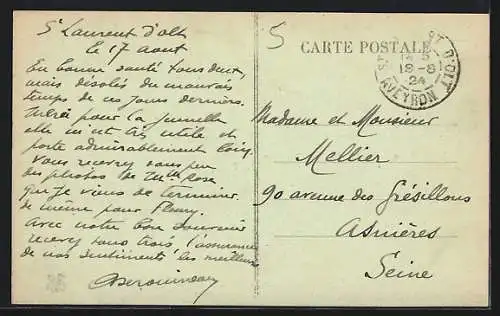 St Laurent d'olt
le 17 aout
En bonne santé tous deux,
mais désolés du mauvais
temps de ces jours derniers.
Merci pour la jumelle
elle m'est très utile et
porte admirablement loin.
Vous recevrez sous peu
des photos de Mlle Rose
que je viens de terminer
de même pour Fleury.
Avec notre bon souvenir
recevez tous trois, l'assurance
de nos sentiments les meilleurs
5
CARTE POSTALE
D'OLT
18-8
24
AVEYRON
Madame et Monsieur
Mellier
90 avenue des Grésillons
Asnières
Seine